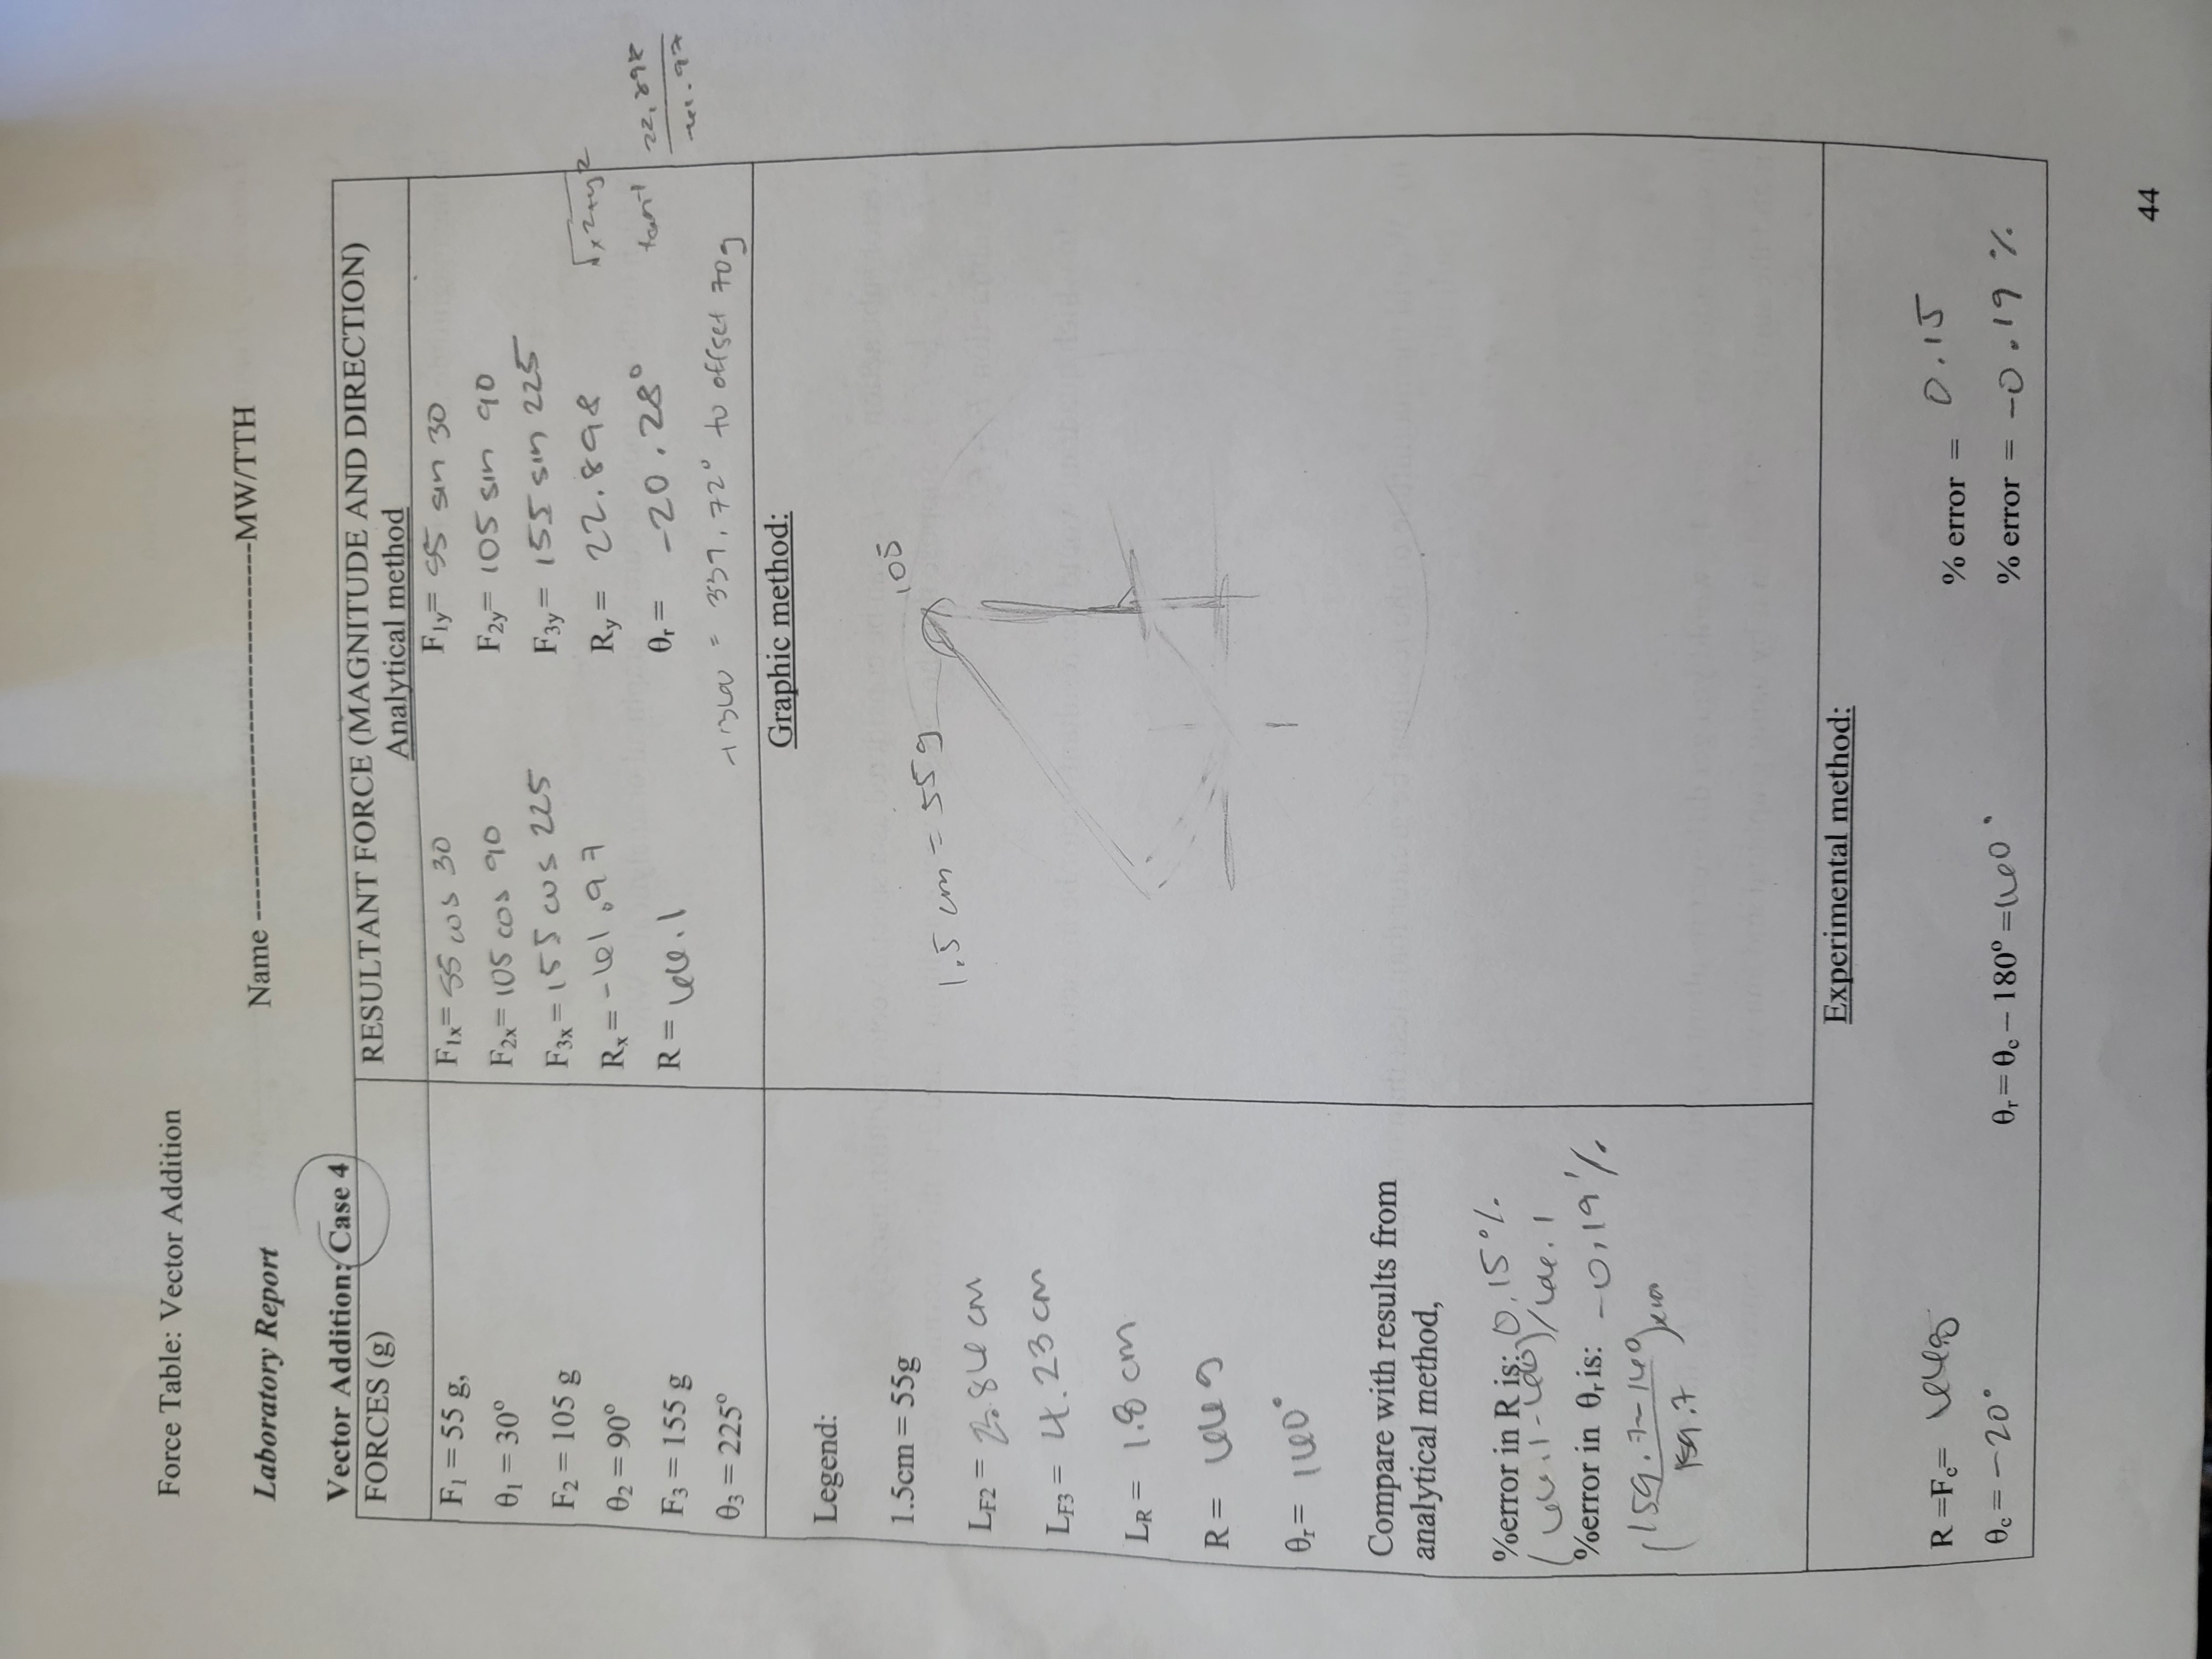 Force Table: Vector Addition
Laboratory Report
Name ----------------------------------------MW/TTH
Vector Addition: Case 4
FORCES (g)
RESULTANT FORCE (MAGNITUDE AND DIRECTION)
Analytical method
F1 = 55 g,
θ1 = 30°
F2 = 105 g
θ2 = 90°
F3 = 155 g
θ3 = 225°
F1x= 55 cos 30
F1y= 55 sin 30
F2x= 105 cos 90
F2y= 105 sin 90
F3x= 155 cos 225
F3y= 155 sin 225
Rx = -61.97
Ry = 22.898
√x2+y2
R = 66.1
θr = -20.28°
tan-1
22.898
-61.97
+360 = 339.72° to offset 70g
Legend:
1.5cm = 55g
LF2 = 2.86 cm
LF3 = 4.23 cm
LR = 1.8 cm
R = 66 g
θr= 160°
Compare with results from
analytical method,
%error in R is: 0.15%
(66.1-66)/66.1
%error in θr is: -0.19%
(159.7-160)
159.7
Graphic method:
105
1.5 cm = 55g
Experimental method:
R =Fc= 66g
% error = 0.15
θc = -20°
θr = θc – 180° = 160°
% error = -0.19 %
44